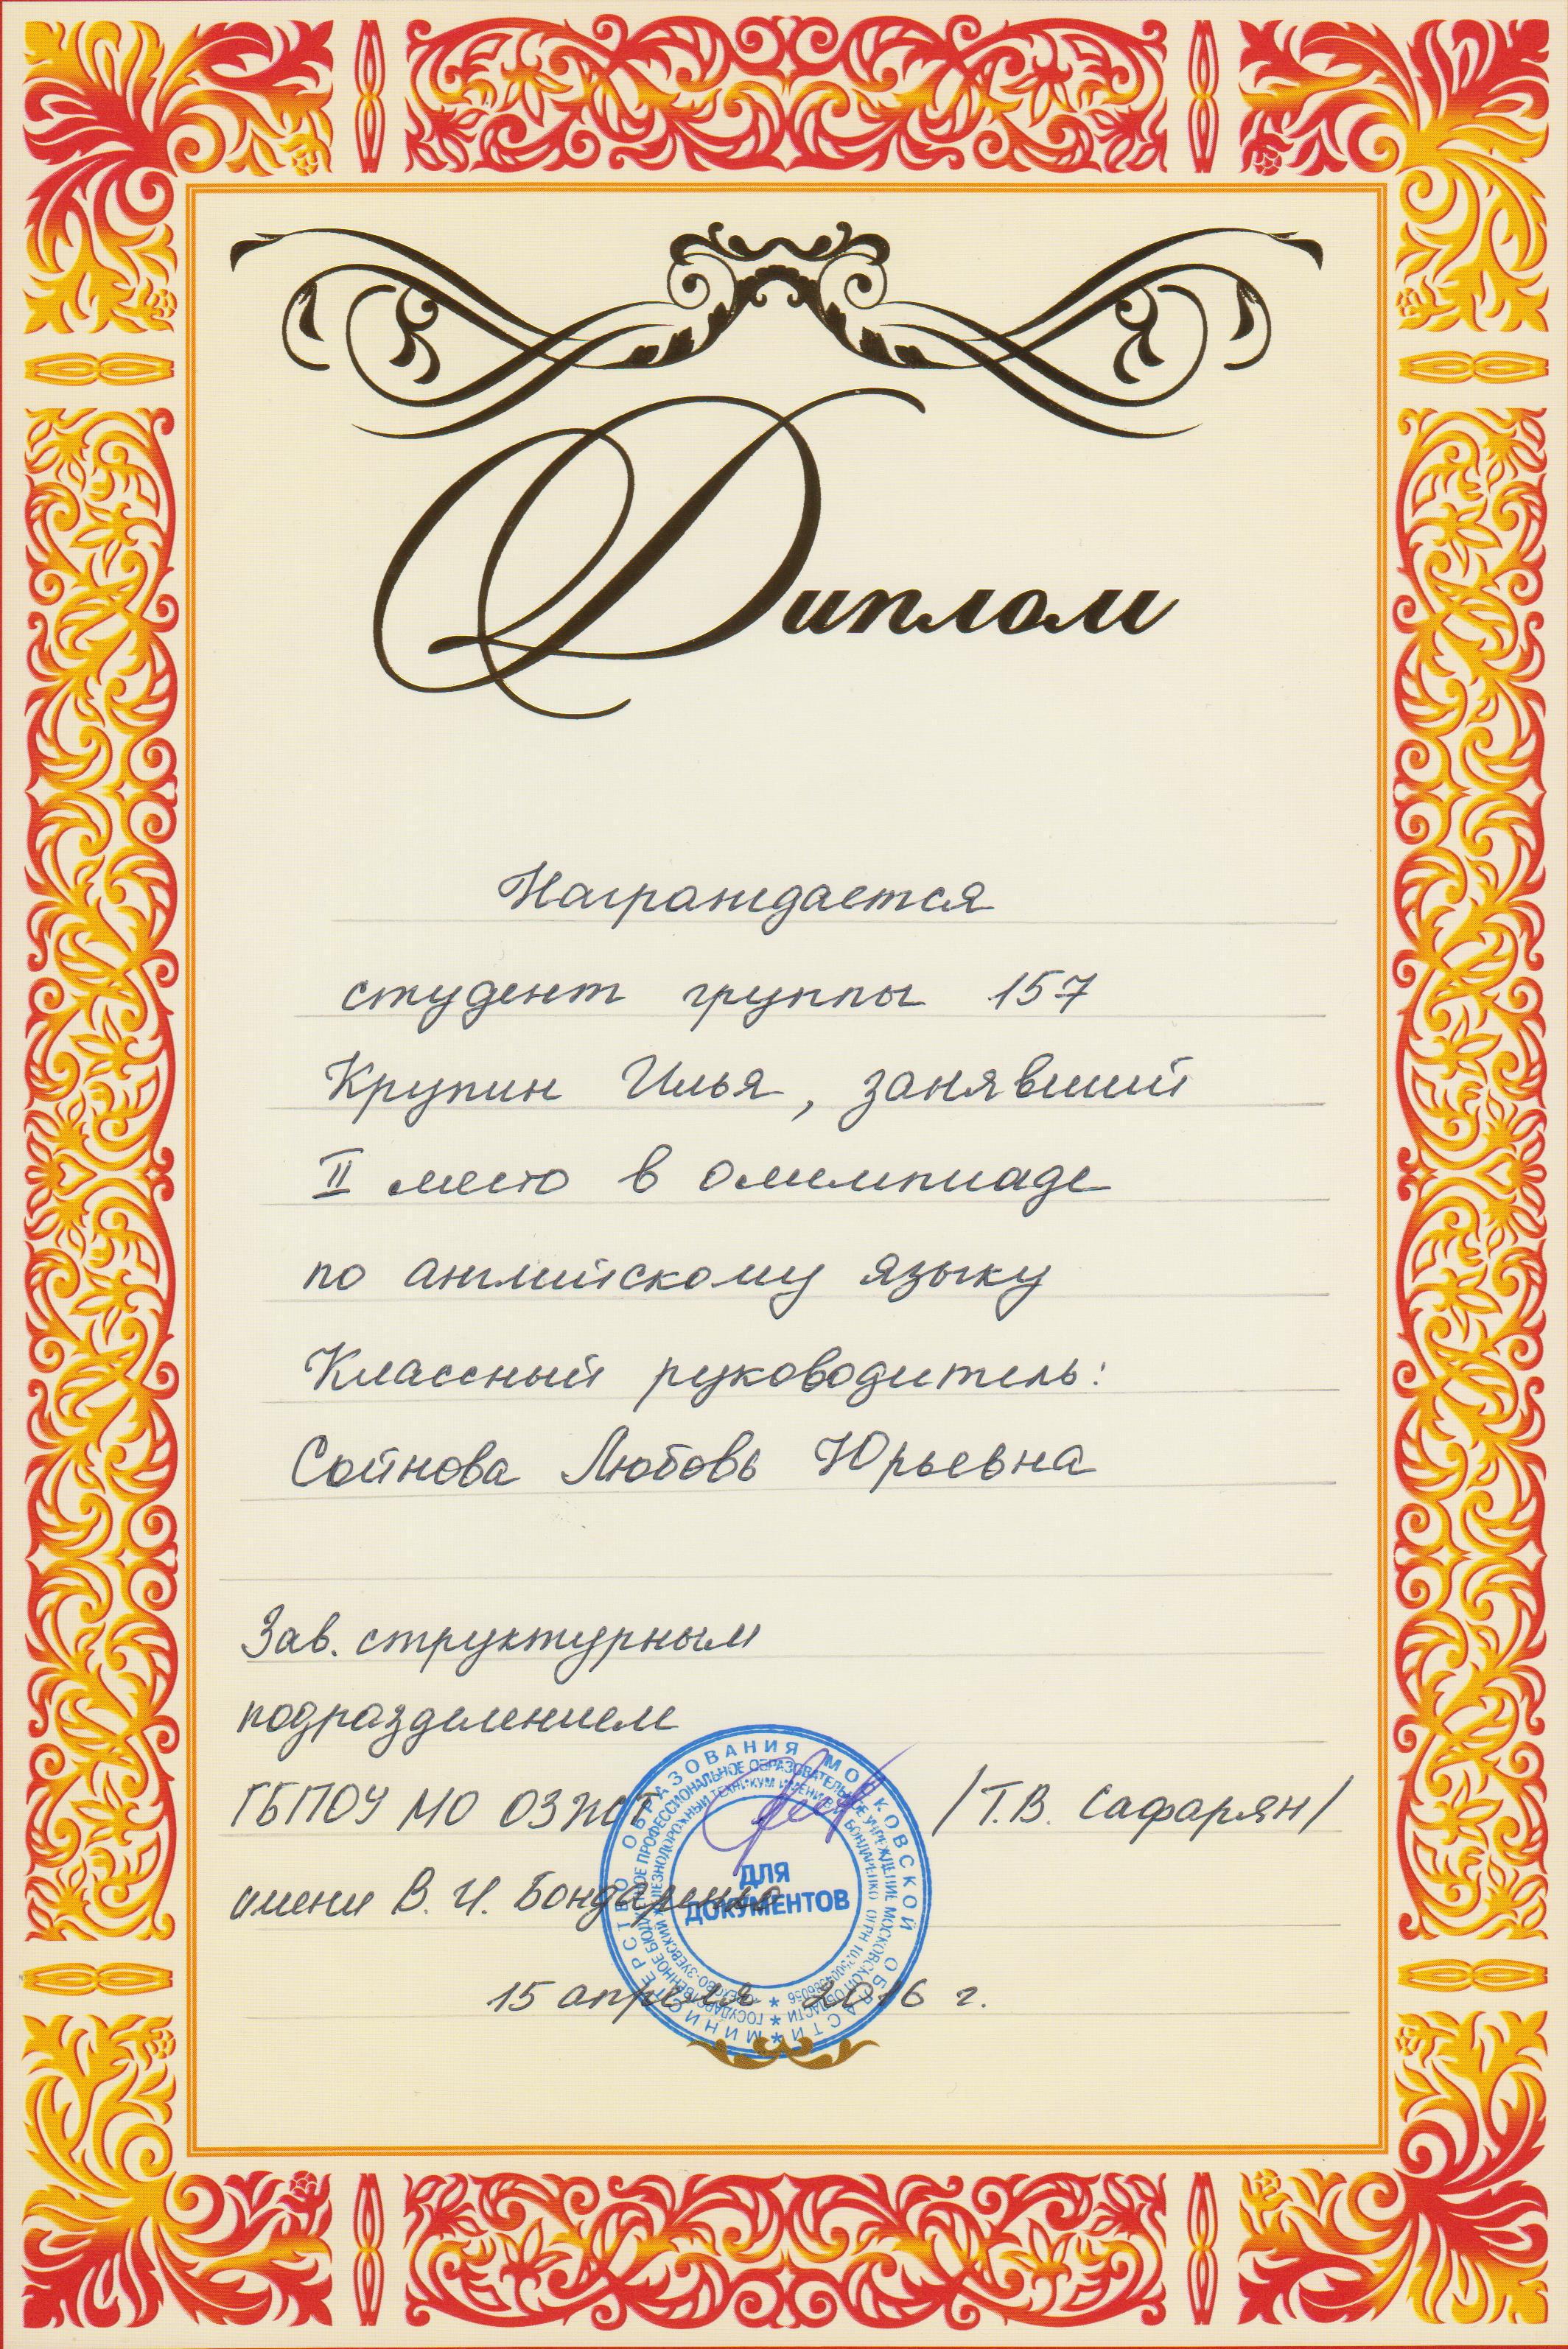 Диплом
Награждается
студент группы 157
Крупин Илья, занявший
II место в олимпиаде
по английскому языку
Классный руководитель:
Сойнова Любовь Юрьевна
Зав. структурным
подразделением
ГБПОУ МО ОЗЖДТ /Т.В. Сафарян/
имени В. И. Бондаренко
15 апреля 2016 г.
МИНИСТЕРСТВО ОБРАЗОВАНИЯ МОСКОВСКОЙ ОБЛАСТИ
ГОСУДАРСТВЕННОЕ БЮДЖЕТНОЕ ПРОФЕССИОНАЛЬНОЕ ОБРАЗОВАТЕЛЬНОЕ УЧРЕЖДЕНИЕ МОСКОВСКОЙ ОБЛАСТИ
ЖЕЛЕЗНОДОРОЖНЫЙ ТЕХНИКУМ ИМЕНИ БОНДАРЕНКО ОГРН
ДЛЯ
ДОКУМЕНТОВ